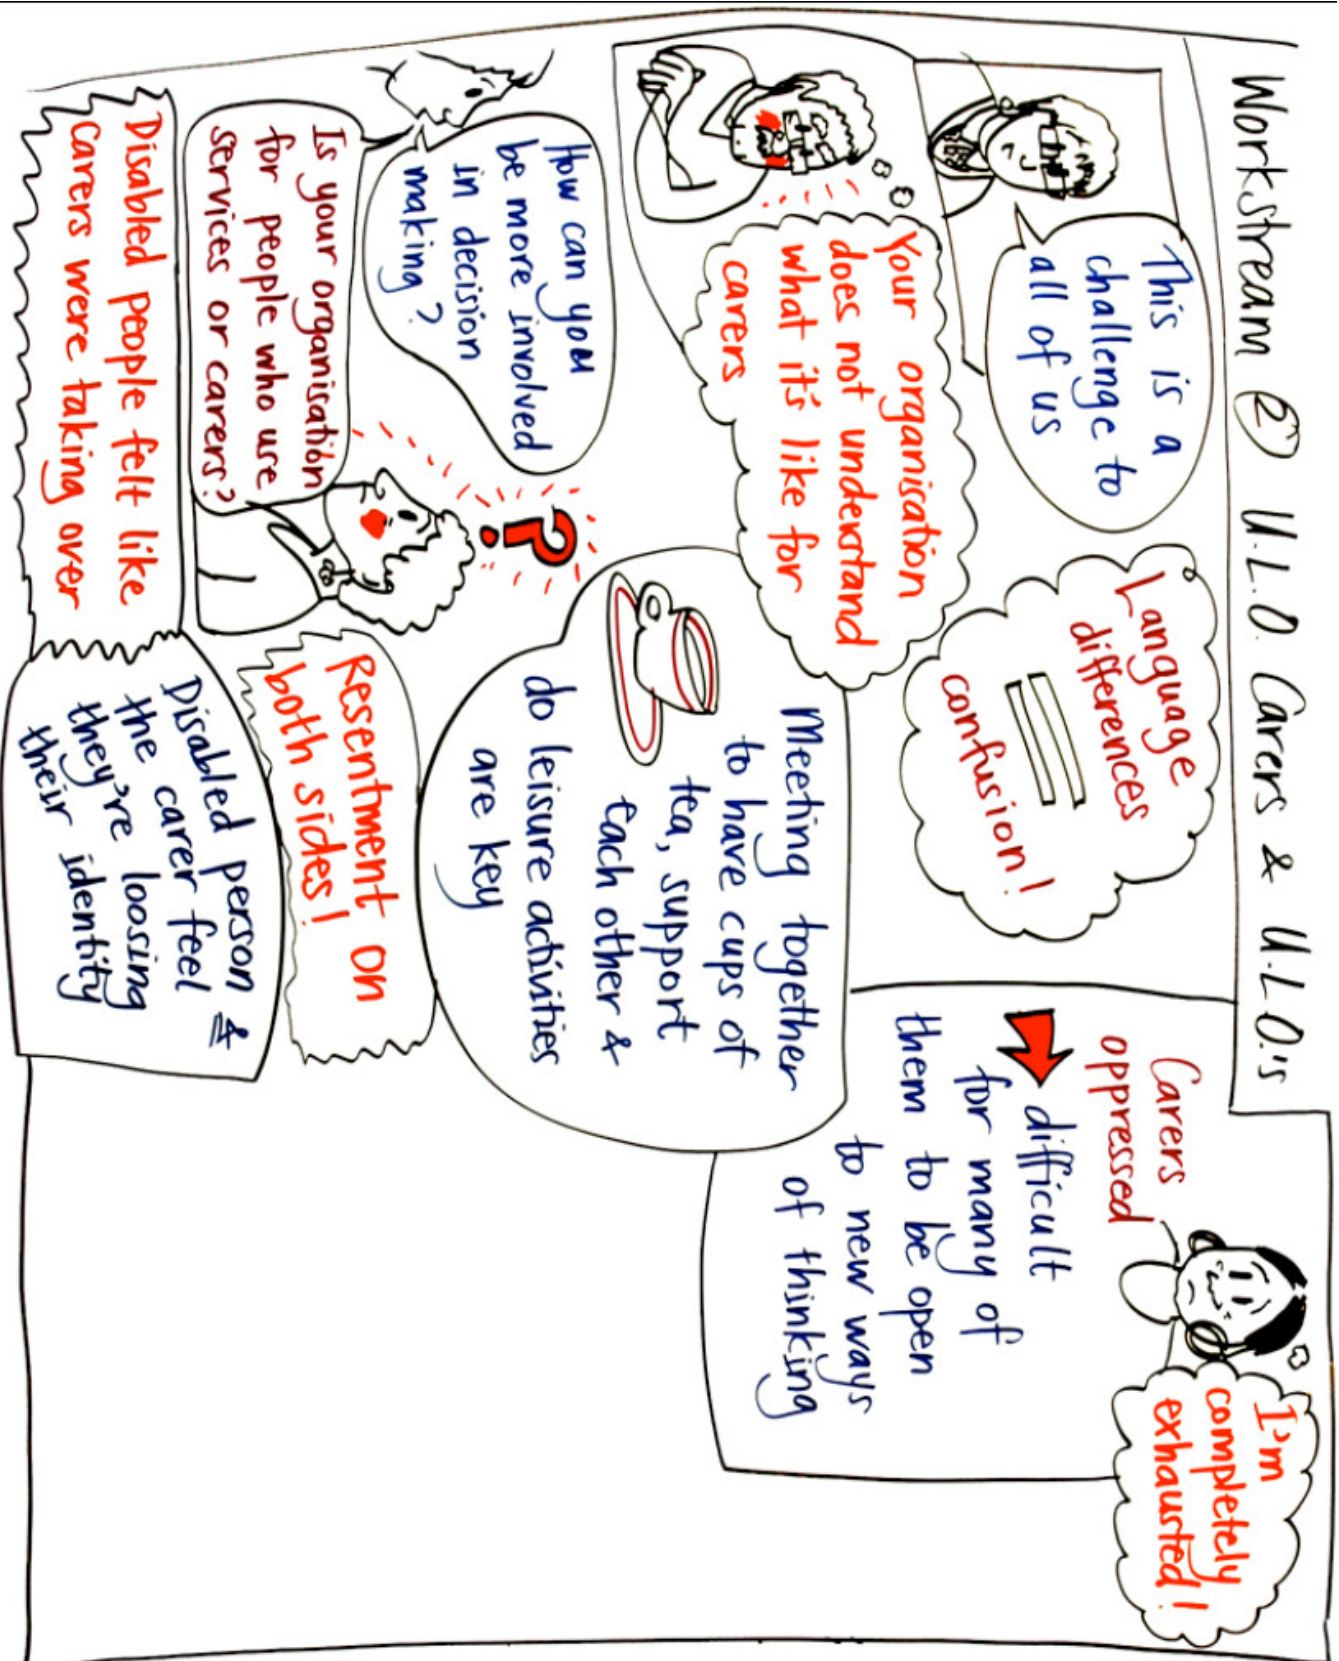 Workstream 2 U.L.O. Carers & U.L.O.'s
This is a
challenge to
all of us
Language
differences
=
confusion!
Carers
oppressed
difficult
for many of
them to be open
to new ways
of thinking
I'm
completely
exhausted!
Your organisation
does not understand
what it's like for
carers
Meeting together
to have cups of
tea, support
each other &
do leisure activities
are key
How can you
be more involved
in decision
making?
?
Is your organisation
for people who use
services or carers?
Resentment on
both sides!
Disabled people felt like
carers were taking over
Disabled person &
the carer feel
they're loosing
their identity